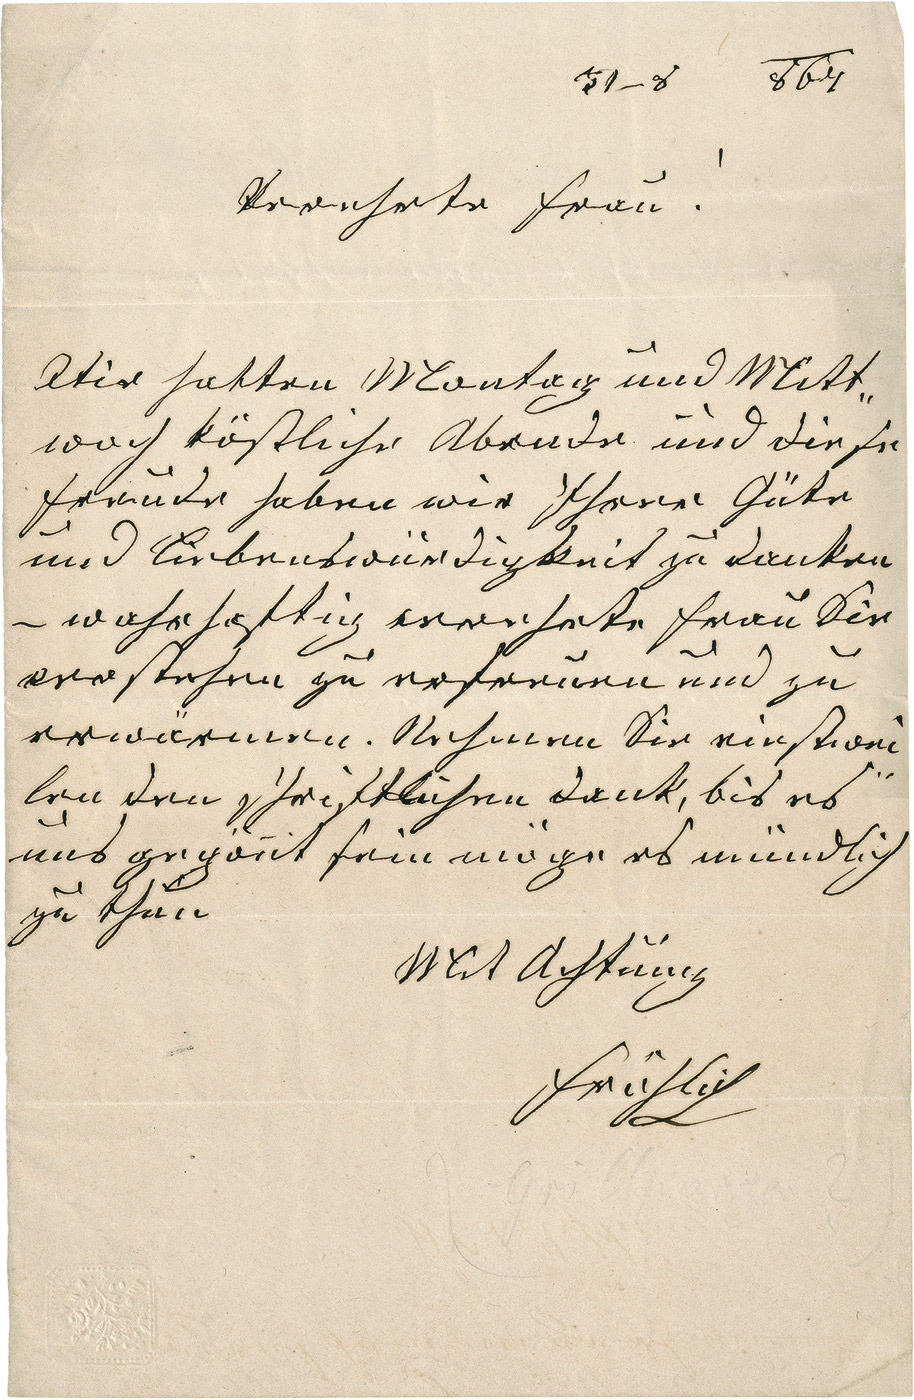 31–8 864
Verehrte Frau!
Wir hatten Montag und Mitt„
woch köstliche Abende und diese
Freude haben wir Ihrer Güte
und Liebenswürdigkeit zu danken
– wahrhaftig verehrte Frau Sie
verstehen zu erfreuen und zu
erwärmen. Nehmen Sie einstwei„
len den schriftlichen Dank, bis es
uns gegönnt sein möge es mündlich
zu thun
Mit Achtung
Fröhlich